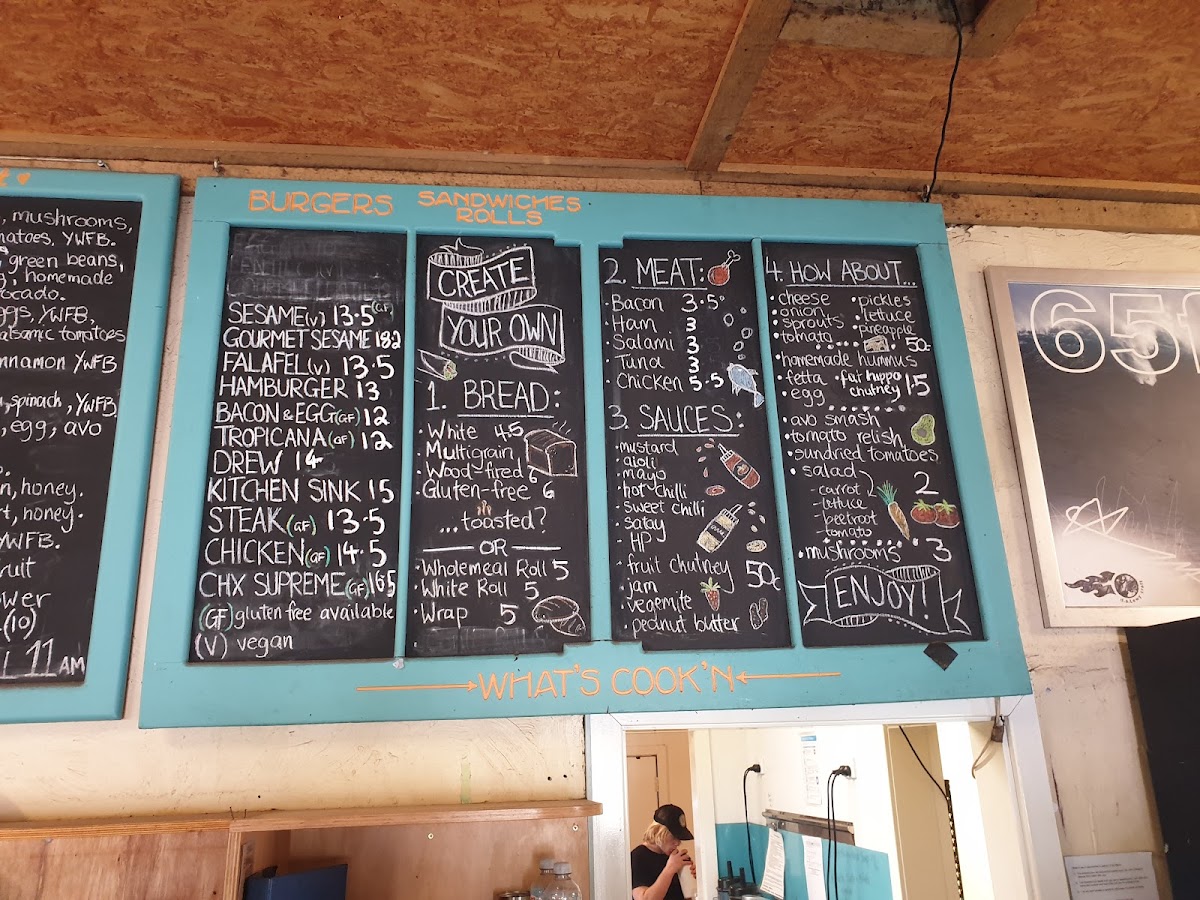 mushrooms,
YWFB.
green beans,
homemade
YWFB,
balsamic tomatoes
cinnamon YWFB
spinach, YWFB,
egg, avo
honey.
honey.
YWFB.
(10)
11 AM
BURGERS
SESAME(V) 13.5 (GF)
GOURMET SESAME
FALAFEL(V) 13.5
HAMBURGER 13
BACON & EGG(GF) 12
TROPICANA(GF) 12
DREW 14
KITCHEN SINK 15
STEAK(GF) 13.5
CHICKEN(GF) 14.5
CHX SUPREME(GF) 16.5
(GF) gluten free available
(V) vegan
SANDWICHES
ROLLS
CREATE
YOUR OWN
1. BREAD:
White 4.5
Multigrain
Wood-fired 6
Gluten-free 6
...toasted?
OR
Wholemeal Roll 5
White Roll 5
Wrap 5
2. MEAT:
Bacon 3.5
Ham 3
Salami 3
Tuna 3
Chicken 5.5
3. SAUCES:
mustard
aioli
mayo
hot chilli
sweet chilli
satay
HP
fruit chutney
jam
vegemite
peanut butter
50c
4. HOW ABOUT...
cheese • pickles
onion • lettuce
sprouts • pineapple
tomato 50c
homemade hummus
fetta • fat hippo
egg chutney 1.5
avo smash
tomato relish
sundried tomatoes
salad
- carrot 2
- lettuce
- beetroot
- tomato
mushrooms 3
ENJOY!
WHAT'S COOK'N
65f